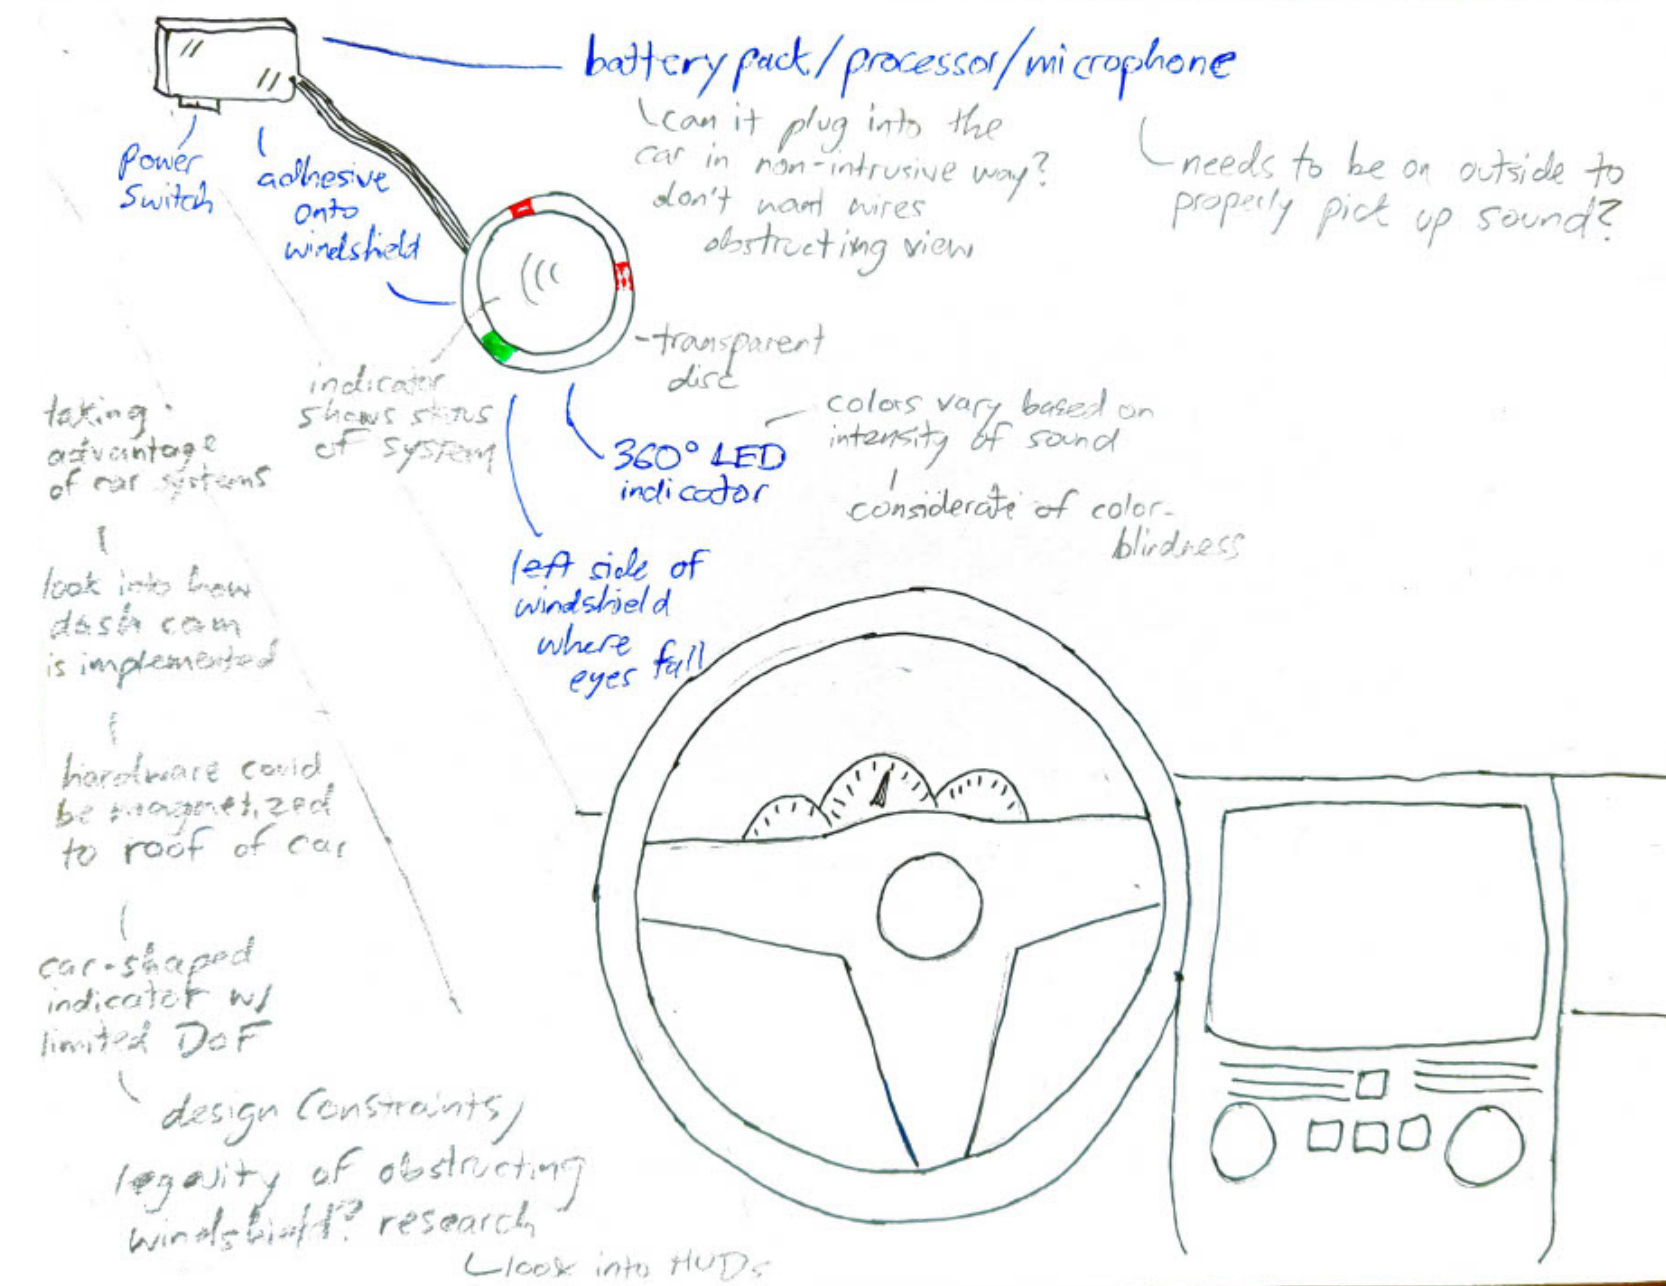 battery pack/processor/microphone
can it plug into the
car in non-intrusive way?
don't want wires
obstructing view
needs to be on outside to
properly pick up sound?
Power
Switch
adhesive
onto
windshield
-transparent
disc
indicator
shows status
of system
360° LED
indicator
colors vary based on
intensity of sound
considerate of color-
blindness
left side of
windshield
where
eyes fall
taking
advantage
of car systems
look into how
dash cam
is implemented
hardware could
be magnetized
to roof of car
car-shaped
indicator w/
limited DoF
design constraints/
legality of obstructing
windshield? research
look into HUDs